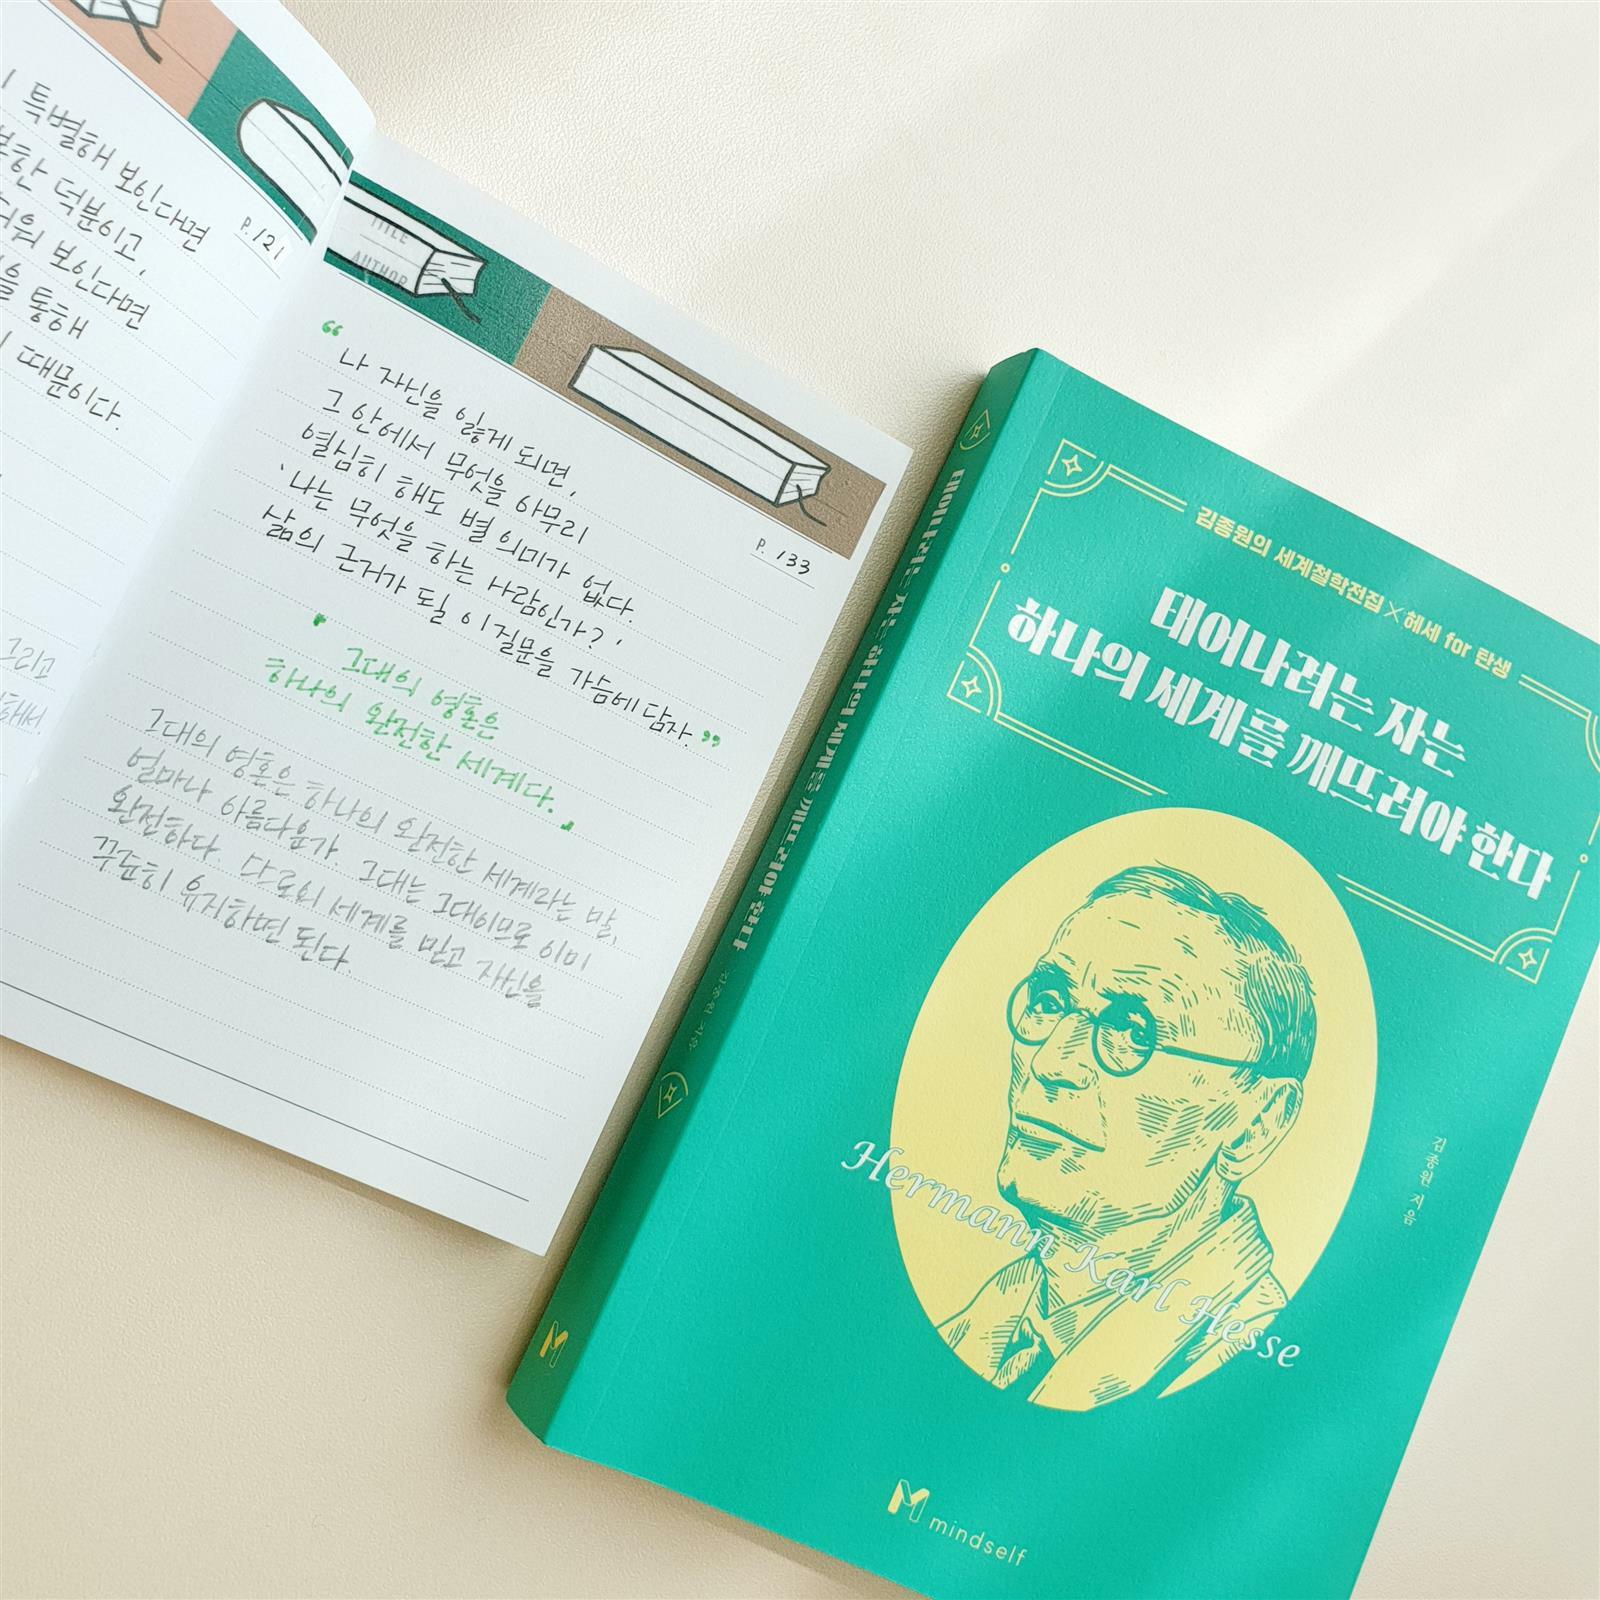 특별해 보인다면
덕분이고,
보인다면
통해
때문이다.
P. 121
그리고
해서.
TITLE
AUTHOR
P. 133
“나 자신을 잃게 되면,
그 안에서 무엇을 아무리
열심히 해도 별 의미가 없다.
'나는 무엇을 하는 사람인가?'
삶의 근거가 될 이 질문을 가슴에 담자.”
「그대의 영혼은
하나의 완전한 세계다.」
그대의 영혼은 하나의 완전한 세계라는 말,
얼마나 아름다운가. 그대는 그대이므로 이미
완전하다. 스스로의 세계를 믿고 자신을
꾸준히 유지하면 된다.
태어나려는 자는 하나의 세계를 깨뜨려야 한다
김종원 지음
김종원의 세계철학전집 × 헤세 for 탄생
태어나려는 자는
하나의 세계를 깨뜨려야 한다
김종원 지음
Hermann Karl Hesse
M mindself